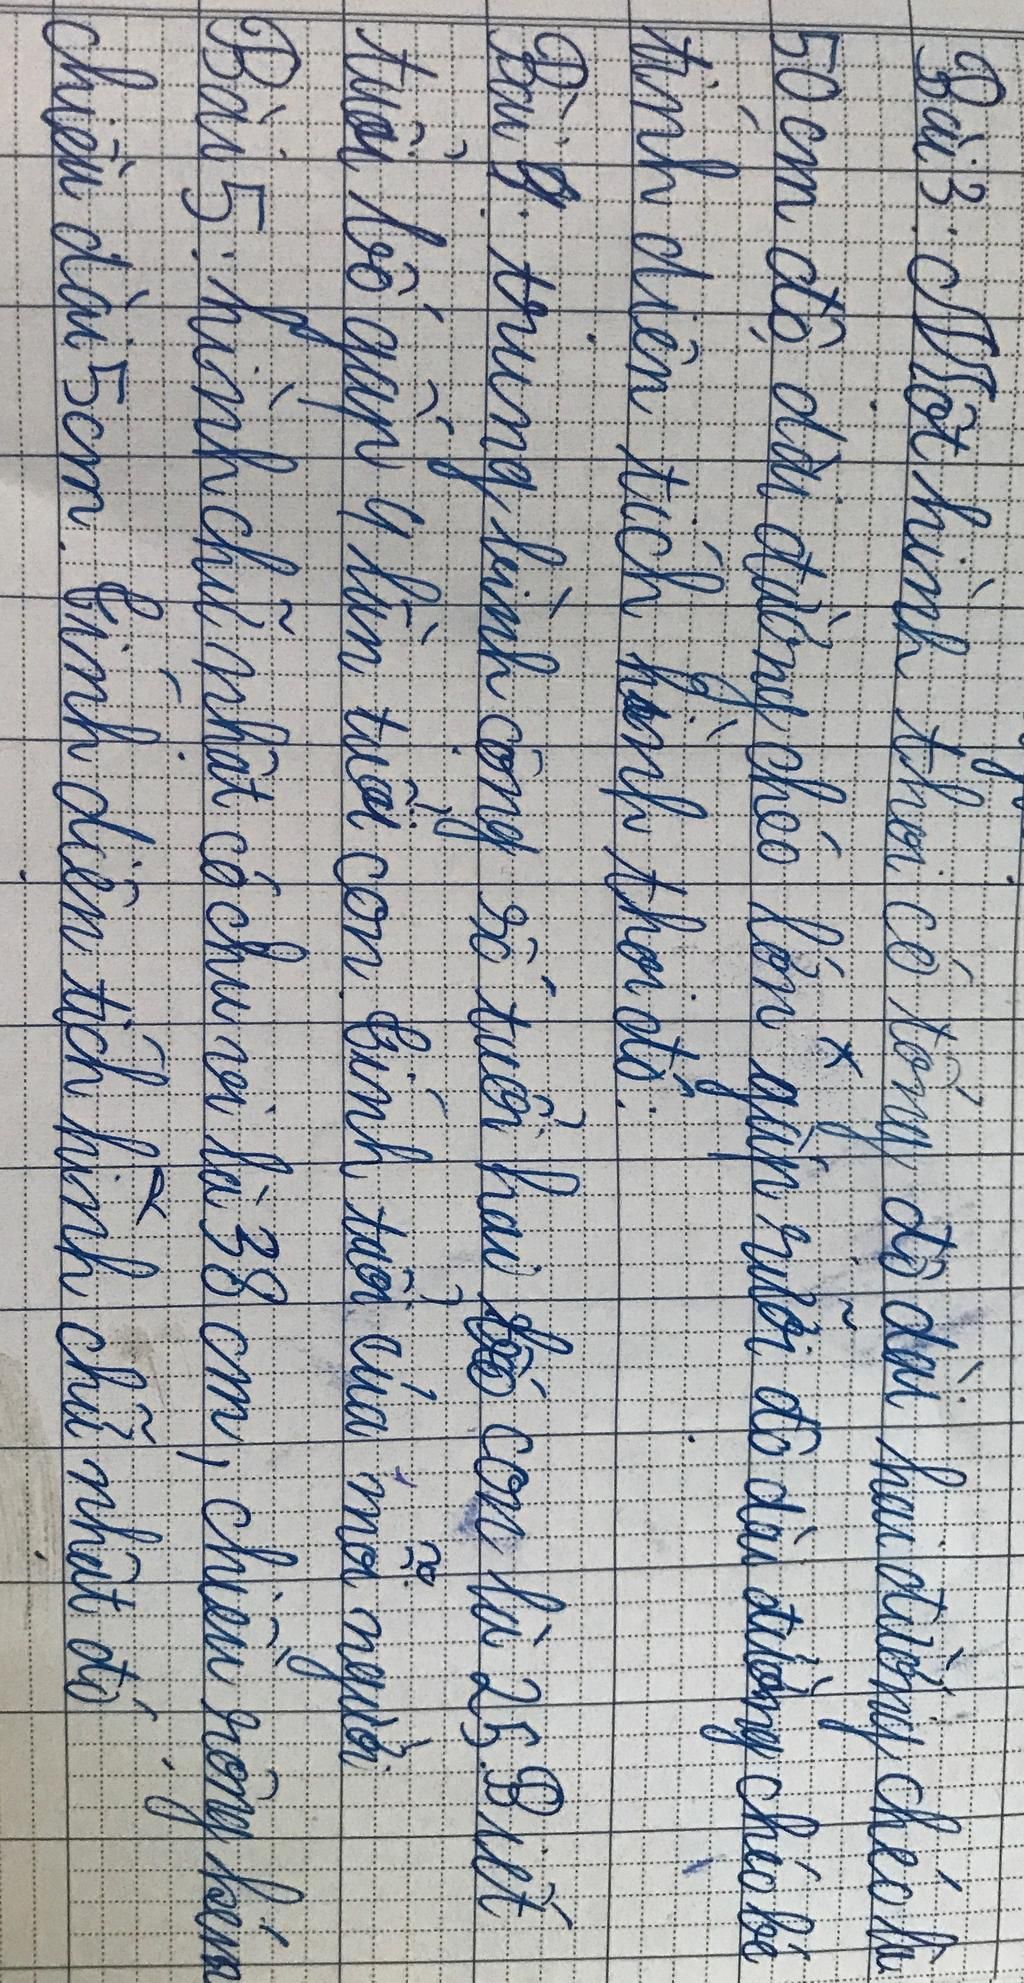 Bài 3: Một hình thoi có tổng độ dài hai đường chéo là
50cm độ dài đường chéo lớn gấp rưỡi độ dài đường chéo bé
tính diện tích hình thoi đó.
Bài 4: trung bình cộng số tuổi hai bố con là 25. Biết
tuổi bố gấp 4 lần tuổi con. Tính tuổi của mỗi người
Bài 5: hình chữ nhật có chu vi là 38 cm, chiều rộng kém
chiều dài 5cm. Tính diện tích hình chữ nhật đó